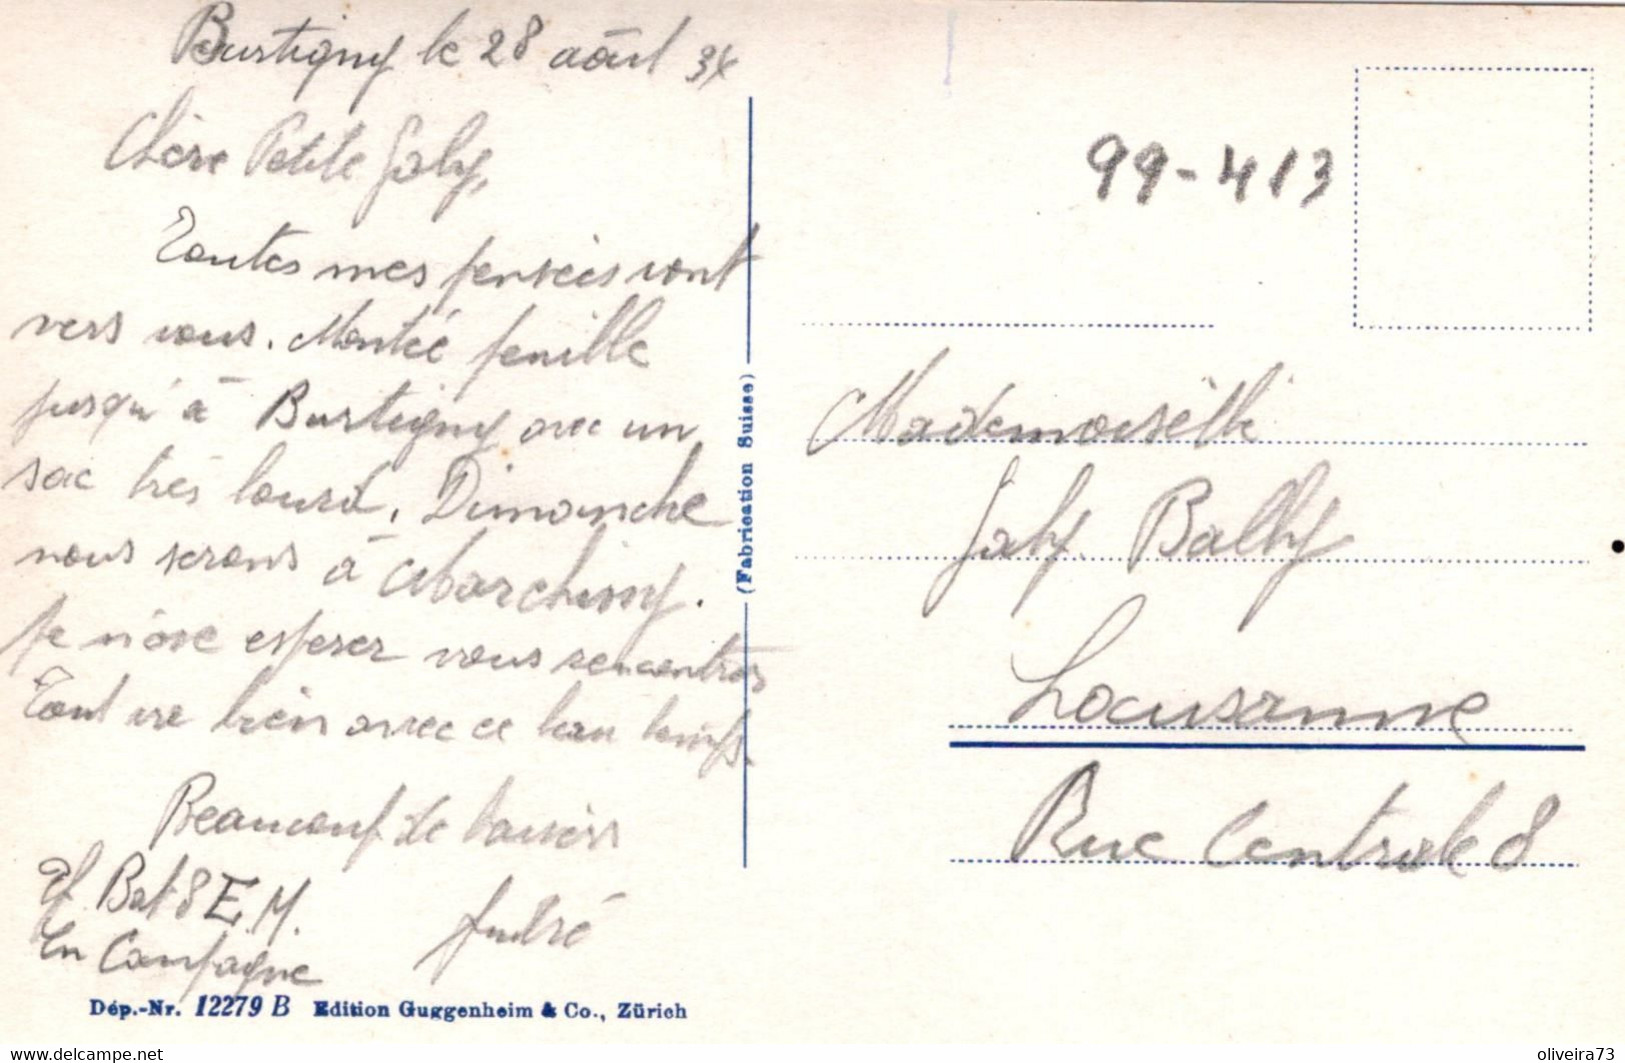 Burtigny le 28 août 34
Chère Petite Gaby,
Toutes mes pensées vont
vers vous. Montée
jusqu'à Burtigny avec un
sac très lourd. Dimanche
nous serons à Marchissy.
Je n'ose espérer vous rencontrer
Tout va bien avec ce beau temps.
Beaucoup de baisers
Bat 8 E. M.
En Campagne
André
Dép.-Nr. 12279 B Edition Guggenheim & Co., Zürich
(Fabrication Suisse)
99-413
Mademoiselle
Gaby Bally
Lausanne
Rue Centrale 8
delcampe.net
oliveira73